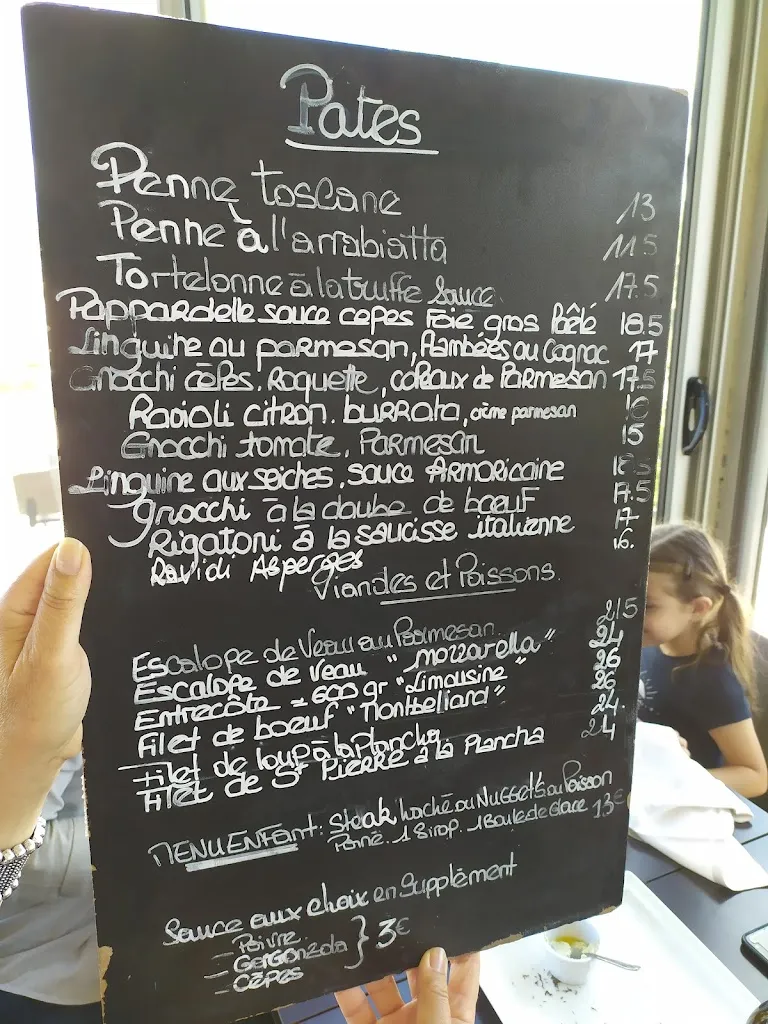 Pates
Penne toscane 13
Penne à l'arrabiatta 11.5
Tortelonne à la truffe sauce 17.5
Pappardelle sauce cepes Foie gras Poêlé 18.5
Linguine au parmesan, flambées au Cognac 17
Gnocchi cèpes. Roquette, copeaux de Parmesan 17.5
Ravioli citron. burrata, crème parmesan 16
Gnocchi tomate, Parmesan 15
Linguine aux seiches, sauce Armoricaine 18.5
gnocchi à la daube de bœuf 17.5
Rigatoni à la saucisse italienne 17
Ravioli Asperges 16.
Viandes et Poissons.
Escalope de Veau au Parmesan 21.5
Escalope de Veau "mozzarella" 24
Entrecôte = 600 gr "Limousine" 26
Filet de bœuf "Montbeliard" 26
Filet de loup à la Plancha 24
Filet de St Pierre à la Plancha 24
MENU ENFANT: Steak haché ou Nuggets ou Poisson
Panné. 1 Sirop. 1 Boule de Glace 13€
Sauce aux choix en Supplément
- Poivre
- Gorgonzola } 3€
- Cèpes